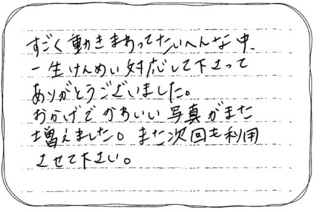 すごく動きまあってたいへんな中、
一生けんめい対応して下さって
ありがとうございました。
おかげでかわいい写真がまた
増えました。また次回も利用
させて下さい。